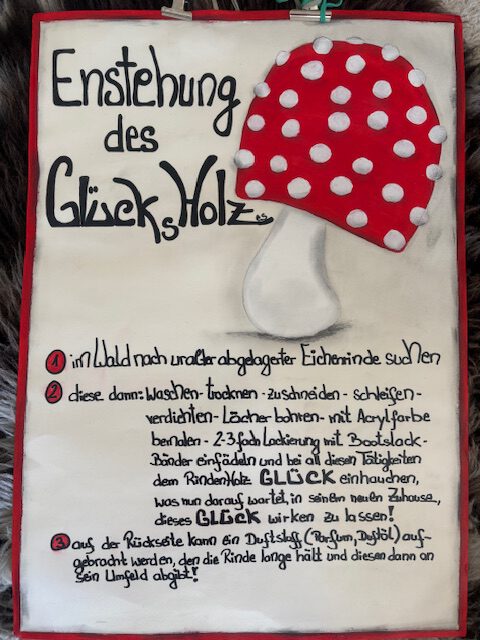 Enstehung
des
GlücksHolz es
1 im Wald nach uralter abgelagerter Eichenrinde suchen
2 diese dann: Waschen - trocknen - zuschneiden - schleifen -
verdichten - Löcher bohren - mit Acrylfarbe
bemalen - 2-3 fach Lackierung mit Bootslack -
Bänder einfädeln und bei all diesen Tätigkeiten
dem RindenHolz GLÜCK einhauchen,
was nun darauf wartet, in seinem neuen Zuhause,
dieses GLÜCK wirken zu lassen!
3 auf der Rückseite kann ein Duftstoff (Parfum, Duftöl) auf-
gebracht werden, den die Rinde lange hält und diesen dann an
sein Umfeld abgibt!